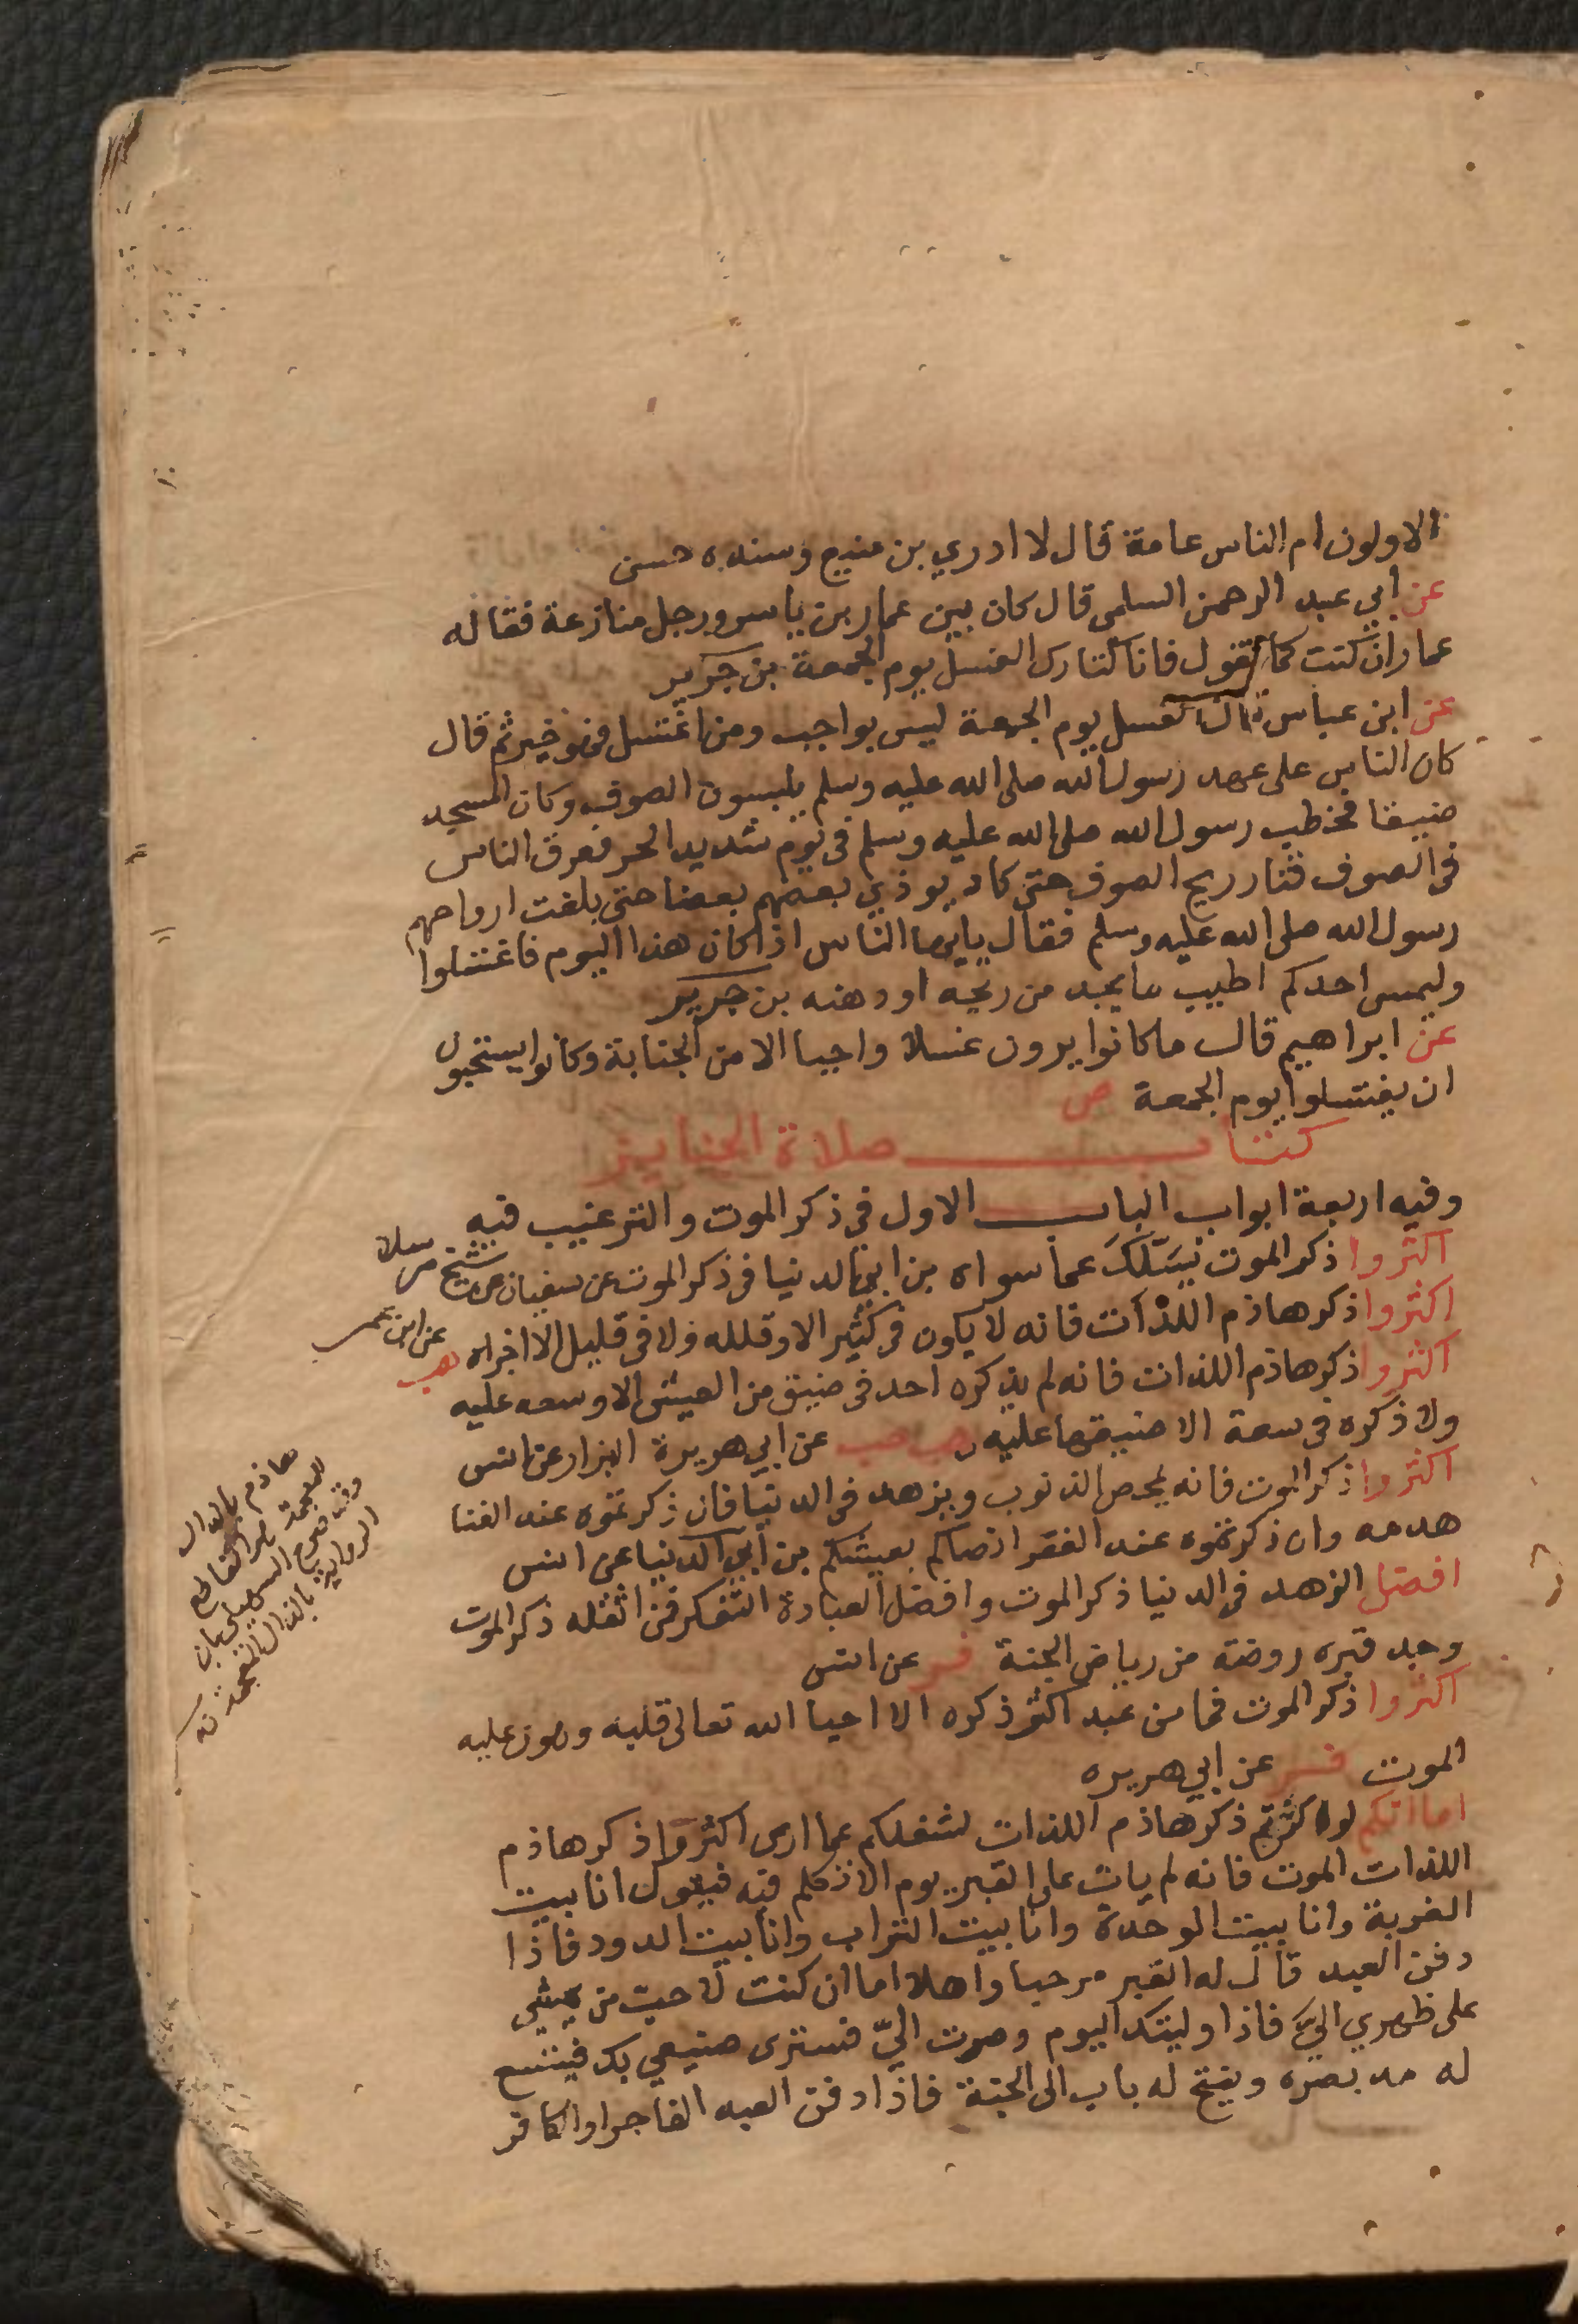 الاولون ام الناس عامة قال لا ادري بن منيع وسنده حسن
عن ابي عبد الرحمن السلمي قال كان بين عمار بن ياسر ورجل منازعة فقال له
عمار ان كنت كما تقول فانا كتارك الغسل يوم الجمعة بن جرير
عن ابن عباس قال الغسل يوم الجمعة ليس بواجب ومن اغتسل فهو خير ثم قال
كان الناس على عهد رسول الله صلى الله عليه وسلم يلبسون الصوف وكان المسجد
ضيقا فخطب رسول الله صلى الله عليه وسلم في يوم شديد الحر فعرق الناس
في الصوف فثار ريح الصوف حتى كاد يوذي بعضهم بعضا حتى بلغت ارواحهم
رسول الله صلى الله عليه وسلم فقال يايها الناس اذا كان هذا اليوم فاغتسلوا
وليمس احدكم اطيب ما يجد من ريحه او دهنه بن جرير
عن ابراهيم قال ما كانوا يرون غسلا واجبا الا من الجنابة وكانوا يستحبون
ان يغتسلوا يوم الجمعة ص
كتاب صلاة الجنايز
وفيه اربعة ابواب الباب الاول في ذكر الموت والترغيب فيه
اكثروا ذكر الموت يسلك عما سواه بن ابي الدنيا في ذكر الموت عن سفيان عن شيخ مرسلا
اكثروا ذكر هاذم اللذات فانه لا يكون في كثير الا وقلله ولا في قليل الا اجزاه هب عن ابن عمر
اكثروا ذكر هاذم اللذات فانه لم يذكره احد في ضيق من العيش الا وسعه عليه
ولا ذكره في سعة الا ضيقها عليه هب حب عن ابي هريرة البزار عن انس
اكثروا ذكر الموت فانه يمحص الذنوب ويزهد في الدنيا فان ذكرتموه عند الغنا
هدمه وان ذكرتموه عند الفقر ارضاكم بعيشكم بن ابي الدنيا عن انس
افضل الزهد في الدنيا ذكر الموت وافضل العبادة التفكر فمن اثقله ذكر الموت
وجد قبره روضة من رياض الجنة فر عن انس
اكثروا ذكر الموت فما من عبد اكثر ذكره الا احيا الله تعالى قلبه وهون عليه
الموت فر عن ابي هريره
اما انكم لو اكثرتم ذكر هاذم اللذات لشغلكم عما ارى اكثروا ذكر هاذم
اللذات الموت فانه لم يات على القبر يوم الا تكلم فيه فيقول انا بيت
الغربة وانا بيت الوحدة وانا بيت التراب وانا بيت الدود فاذا
دفن العبد قال له القبر مرحبا واهلا اما ان كنت لاحب من يمشي
على ظهري الي فاذا وليتك اليوم وصرت الي فسترى صنيعي بك فيتسع
له مد بصره ويفتح له باب الى الجنة فاذا دفن العبد الفاجر او الكافر
هاذم بالذال
المعجمة القاطع
السهيلي بان
الرواية بالذال المعجمة